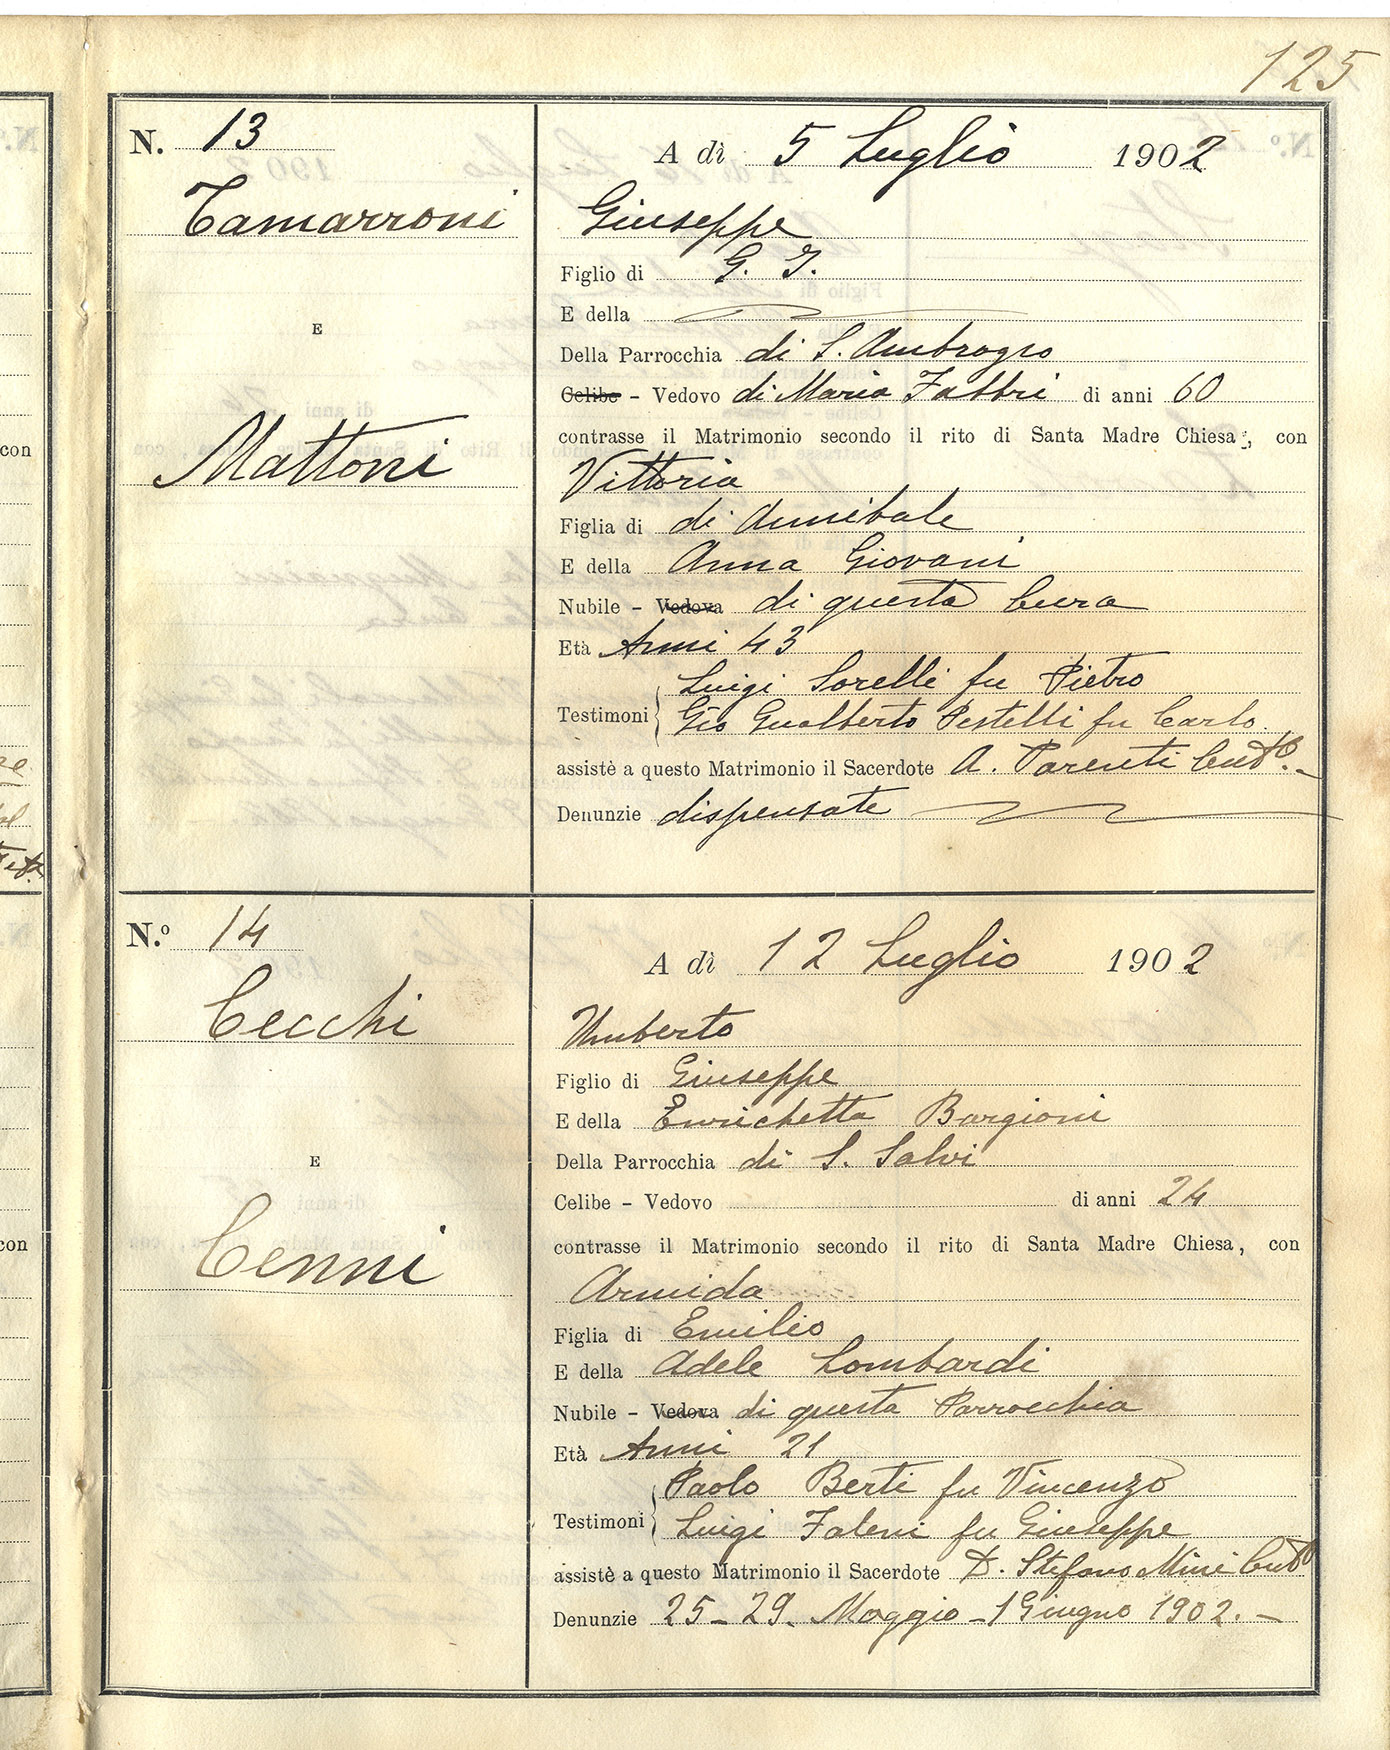 125
N. 13
A dì 5 Luglio 1902
Tamarroni
Giuseppe
Figlio di G. I.
E della
E
Della Parrocchia di S. Ambrogio
Celibe - Vedovo di Maria Fabbri di anni 60
contrasse il Matrimonio secondo il rito di Santa Madre Chiesa, con
Mattoni
Vittoria
Figlia di di Annibale
E della Anna Giovani
Nubile - Vedova di questa Cura
Età Anni 43
Luigi Sorelli fu Pietro
Testimoni
Gio Gualberto Pestelli fu Carlo.
assistè a questo Matrimonio il Sacerdote A. Parenti Cur.to
Denunzie dispensate
N.º 14
A dì 12 Luglio 1902
Cecchi
Umberto
Figlio di Giuseppe
E della Enrichetta Bargioni
E
Della Parrocchia di S. Salvi
Celibe - Vedovo di anni 24
contrasse il Matrimonio secondo il rito di Santa Madre Chiesa, con
Cenni
Armida
Figlia di Emilio
E della Adele Lombardi
Nubile - Vedova di questa Parrocchia
Età Anni 21
Paolo Berti fu Vincenzo
Testimoni
Luigi Faleni fu Giuseppe
assistè a questo Matrimonio il Sacerdote D. Stefano Mini
Denunzie 25-29. Maggio - 1 Giugno 1902. -
con
con